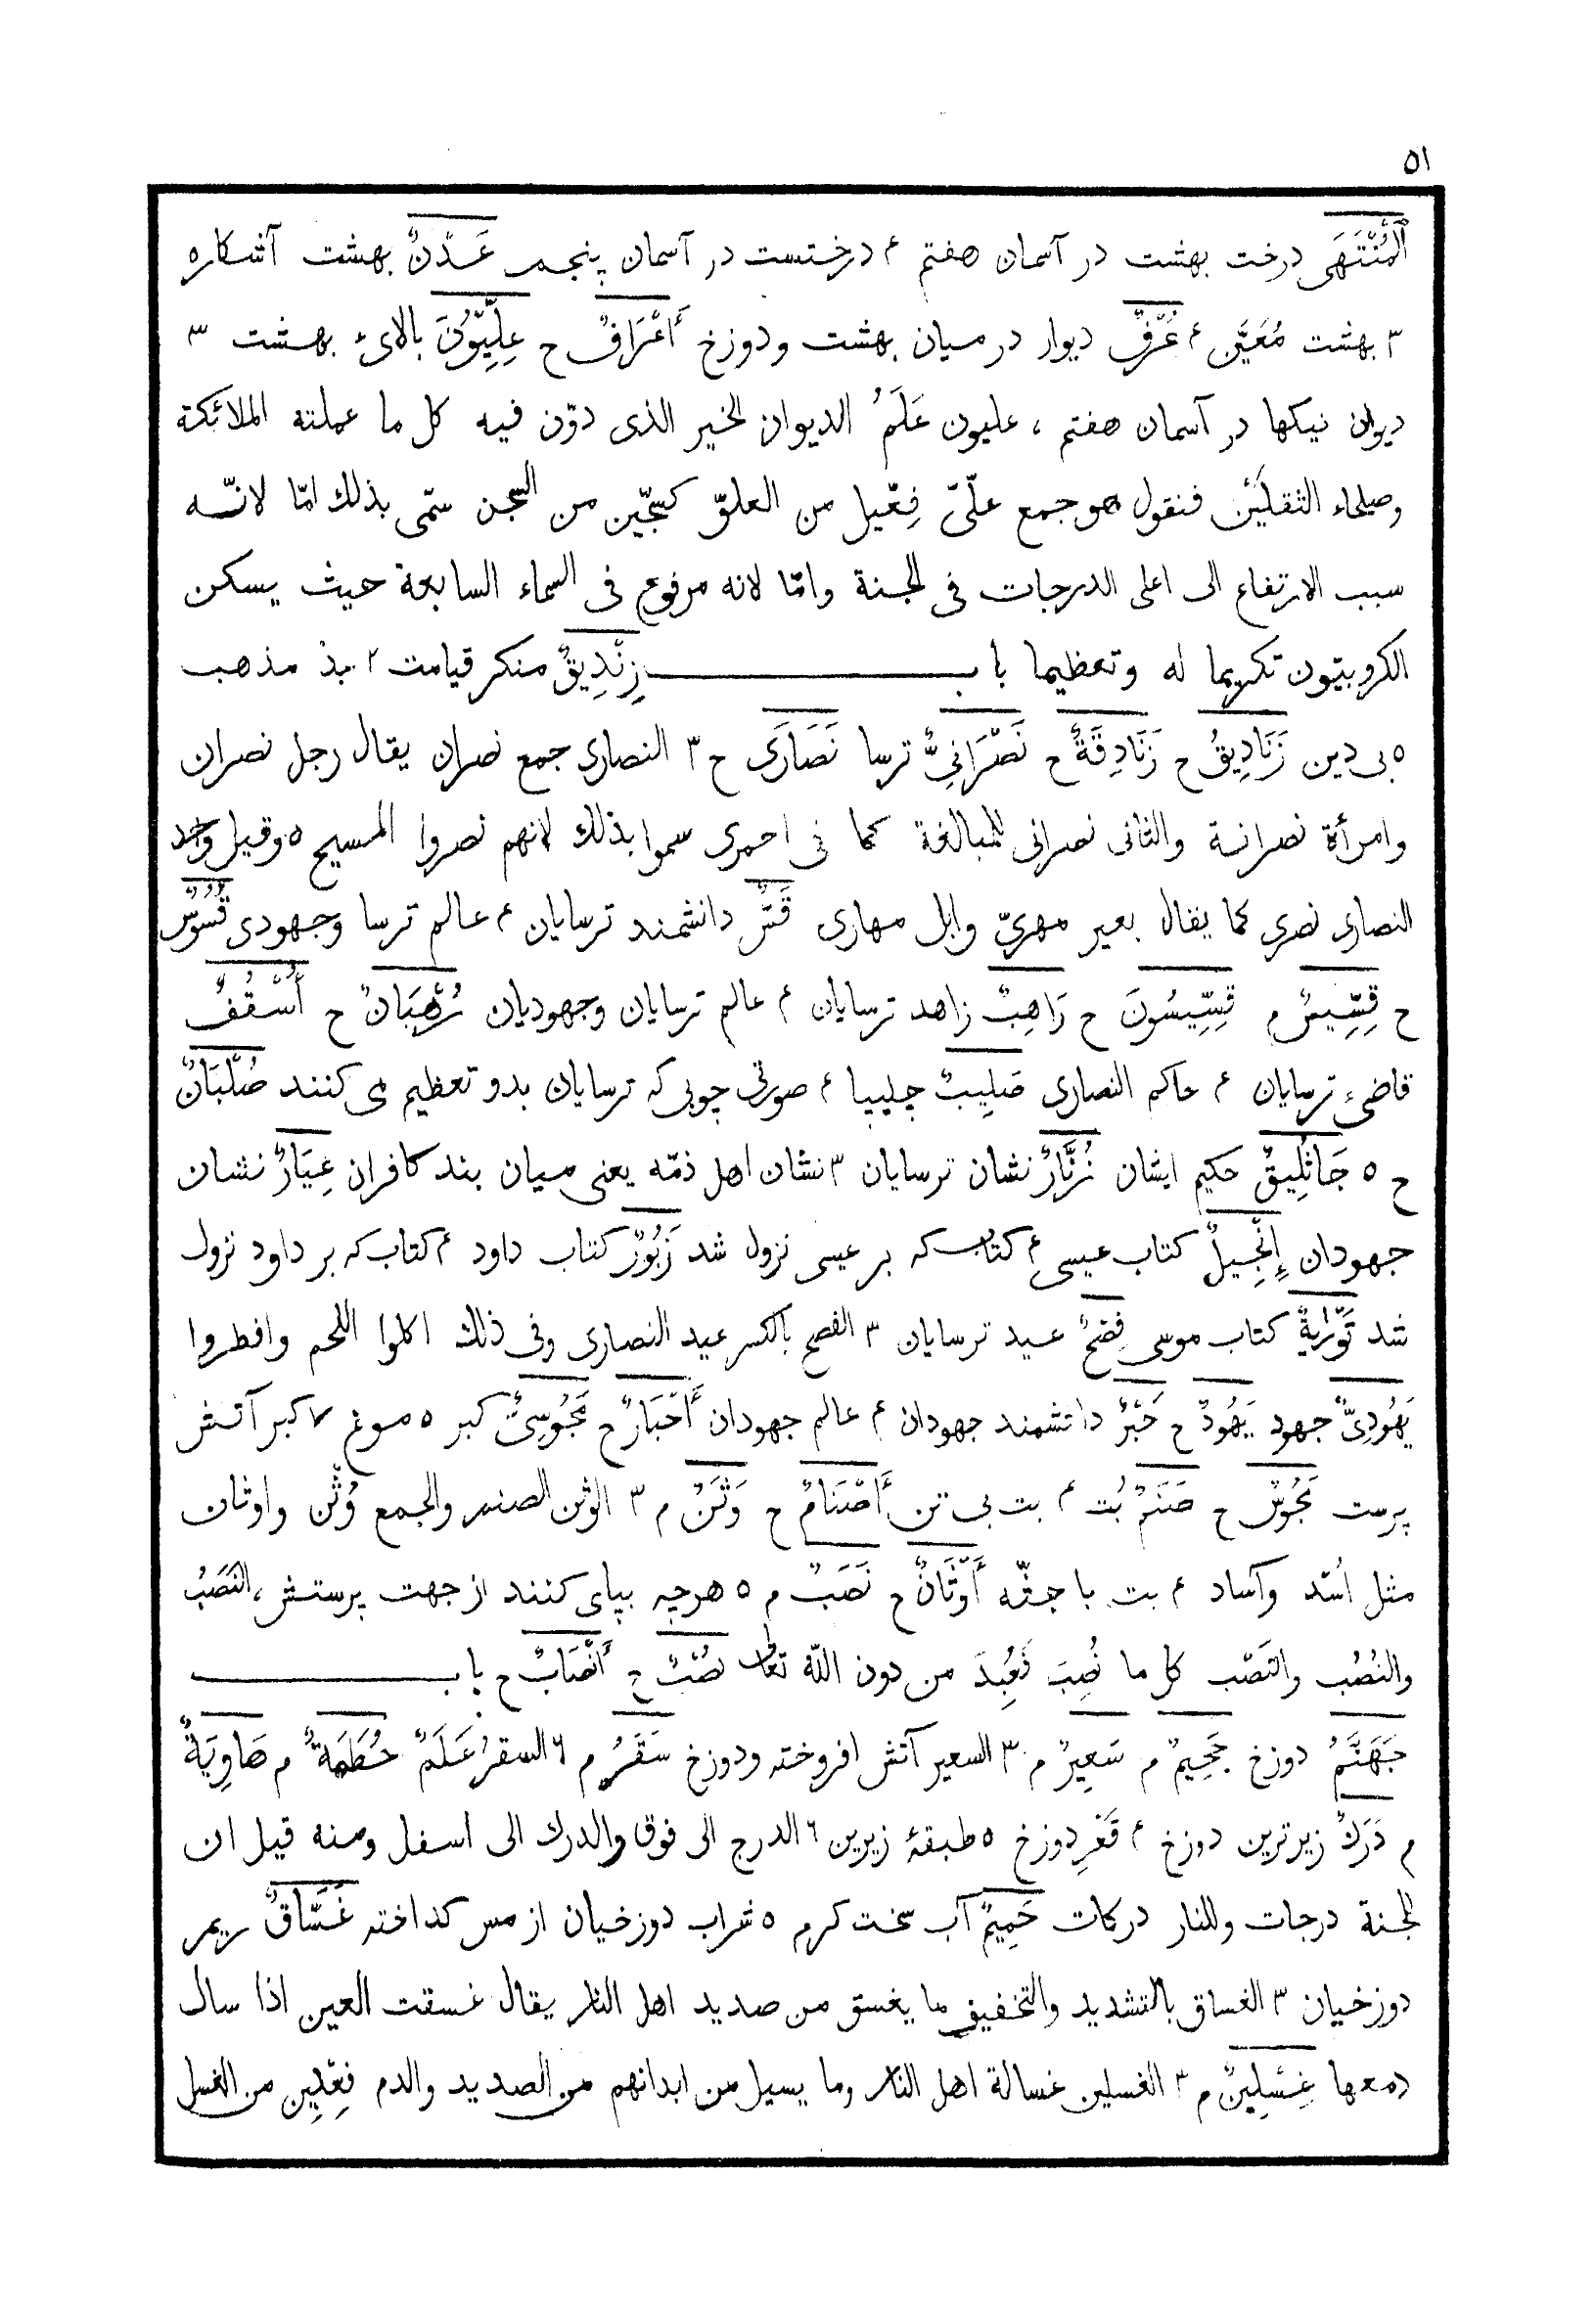 ٥١
ٱلْمُنْتَهَى درخت بهشت در آسمان هفتم ۴ درختست در آسمان پنجم عَدْنٌ بهشت آشکاره
٣ بهشت مُعَيَّن ۴ عُرْفٌ ديوار در ميان بهشت ودوزخ أَعْرَافٌ ح عِلِّيُّونَ بالاىء بهشت ٣
ديوان نيکها در آسمان هفتم ، عليون عَلَمُ الديوان لخير الذى دوّن فيه کل ما عملته الملائکة
وصلحاء الثقلَيْن فنقول هو جمع علّىّ فِعّيل من العلوّ کسجّين من السجن سمّى بذلك امّا لانّه
سبب الارتفاع الى اعلى الدرجات فى لجنة وامّا لانه مرفوع فى السماء السابعة حيث يسکن
الکروبيّون تکريما له وتعظيما باب زِنْدِيقٌ منکر قيامت ٢ بذ مذهب
٥ بى دين زَنَادِيقُ ح زَنَادِقَةٌ ح نَصْرَانِىٌّ ترسا نَصَارَى ح ٣ النصارى جمع نصران يقال رجل نصران
وامرأة نصرانة والثانى نصرانى للمبالغة کما فى احمرى سموا بذلك لانهم نصروا المسيح ٥ وقيل واحد
النصارى نصرى کما يقال بعير مهرىّ وابل مهارى قَسٌّ دانشمند ترسايان ۴ عالم ترسا وجهودى قُسُوسٌ
ح قِسِّيسٌ م قِسِّيسُونَ ح رَاهِبٌ زاهد ترسايان ۴ عالم ترسايان وجهوديان رُهْبَانٌ ح أُسْقُفٌ
قاضىء ترسايان ۴ حاکم النصارى صَلِيبٌ چليپا ۴ صورتى چوبى که ترسايان بدو تعظيم مى کنند صُلْبَانٌ
ح ٥ جَاثَلِيقٌ حکيم ايشان زُنَّارٌ نشان ترسايان ٣ نشان اهل ذمّه يعنى ميان بند کافران غِيَارٌ نشان
جهودان إِنْجِيلٌ کتاب عيسى ۴ کتاب که بر عيسى نزول شد زَبُورٌ کتاب داود ۴ کتاب که بر داود نزول
شد تَوْرَٰيةٌ کتاب موسى فِصْحٌ عيد ترسايان ٣ الفصح بالکسر عيد النصارى وفى ذلك اکلوا اللحم وافطروا
يَهُودِىٌّ جهود يَهُودٌ ح حَبْرٌ دانشمند جهودان ۴ عالم جهودان أَحْبَارٌ ح مَجُوسِىٌّ کبر ٥ موغ ٧ کبر آتش
پرست مَجُوسٌ ح صَنَمٌ بُت ۴ بت بى تن أَصْنَامٌ ح وَثَنٌ م ٣ الوثن الصنم والجمع وُثْن واوثان
مثل اُسْد وآساد ۴ بت با جثّه أَوْثَانٌ ح نَصَبٌ م ٥ هرچه بپاى کنند از جهت پرستش ، النَصَبُ
والنُصُب والنَصْب کل ما نُصِبَ فَعُبِدَ من دون اللّه تعالى نُصُبٌ ح أَنْصَابٌ ح باب
جَهَنَّمُ دوزخ جَحِيمٌ م سَعِيرٌ م ٣ السعير آتش افروخته ودوزخ سَقَرُ م ٦ السقرُ عَلَمٌ حُطَمَةٌ م هَاوِيَةٌ
م دَرَكٌ زيرترين دوزخ ۴ قَعْرِ دوزخ ٥ طبقهٔ زيرين ٦ الدرج الى فوق والدرك الى اسفل ومنه قيل ان
لجنة درجات وللنار درکات حَمِيمٌ آب سخت کرم ٥ شراب دوزخيان از مس کداخته غَسَّاقٌ ريم
دوزخيان ٣ الغساق بالتشديد والتخفيف ما يغسق من صديد اهل النار يقال غسقت العين اذا سال
دمعها غِسْلِينٌ م ٣ الغسلين غسالة اهل النار وما يسيل من ابدانهم من الصديد والدم فِعْلِين من الغسل